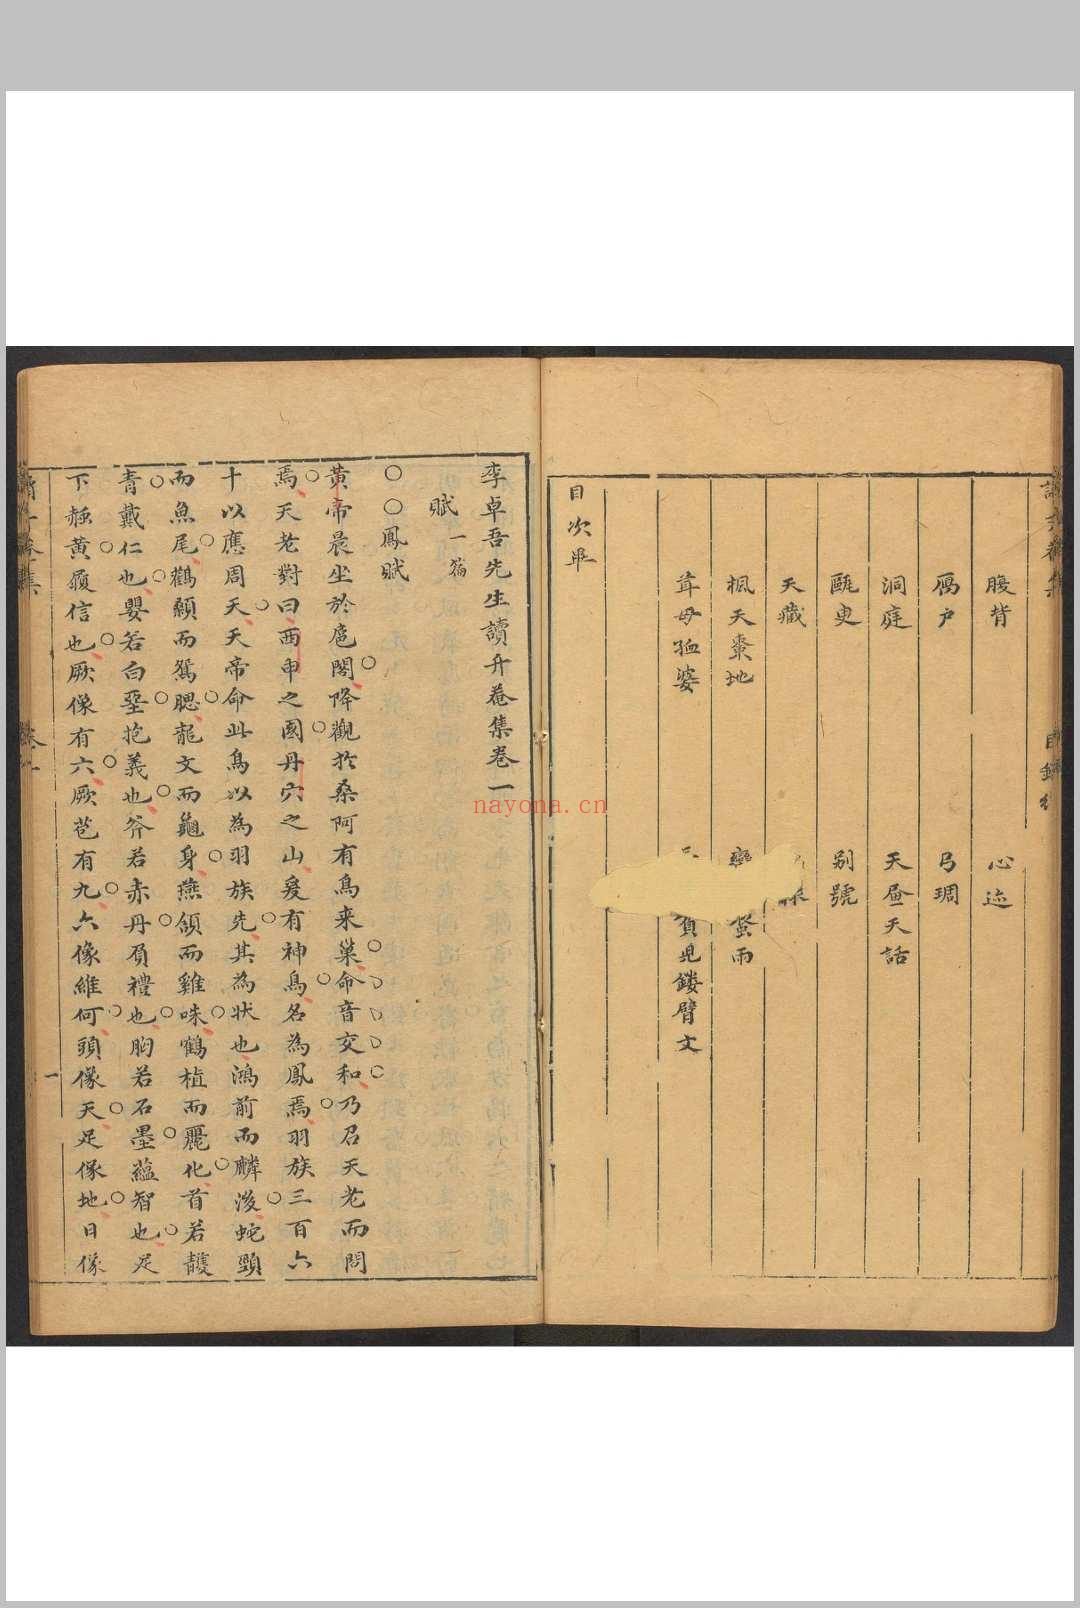 腹背
心迹
雁户
弓琱
洞庭
天晝天話
甌叟
别號
天藏
楓天棗地
蛮雨
茸母孤婆
負兒鏤臂文
目次畢
李卓吾先生讀升菴集卷一
賦一篇
○○鳳賦
黃帝晨坐於扈閣降觀於桑阿有鳥来巢命音交和乃召天老而問
焉天老對曰西申之國丹穴之山爰有神鳥名為鳳焉羽族三百六
十以應周天天帝命此鳥以為羽族先其為状也鴻前而麟後蛇頸
而魚尾鸛顙而鴛腮龍文而龜身燕頷而雞咮鶴植而麗化首若䕶
青戴仁也嬰若白堊抱義也斧若赤丹負禮也胸若石墨藴智也足
下䞓黄履信也厥像有六厥苞有九六像維何頭像天足像地日像
一
nayona.cn